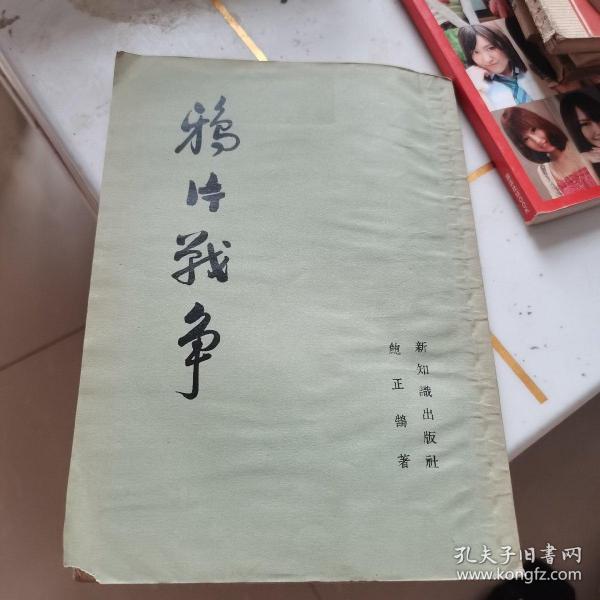 鴉片戰爭
新知識出版社
鮑正鵠著
孔夫子旧书网
www.kongfz.com